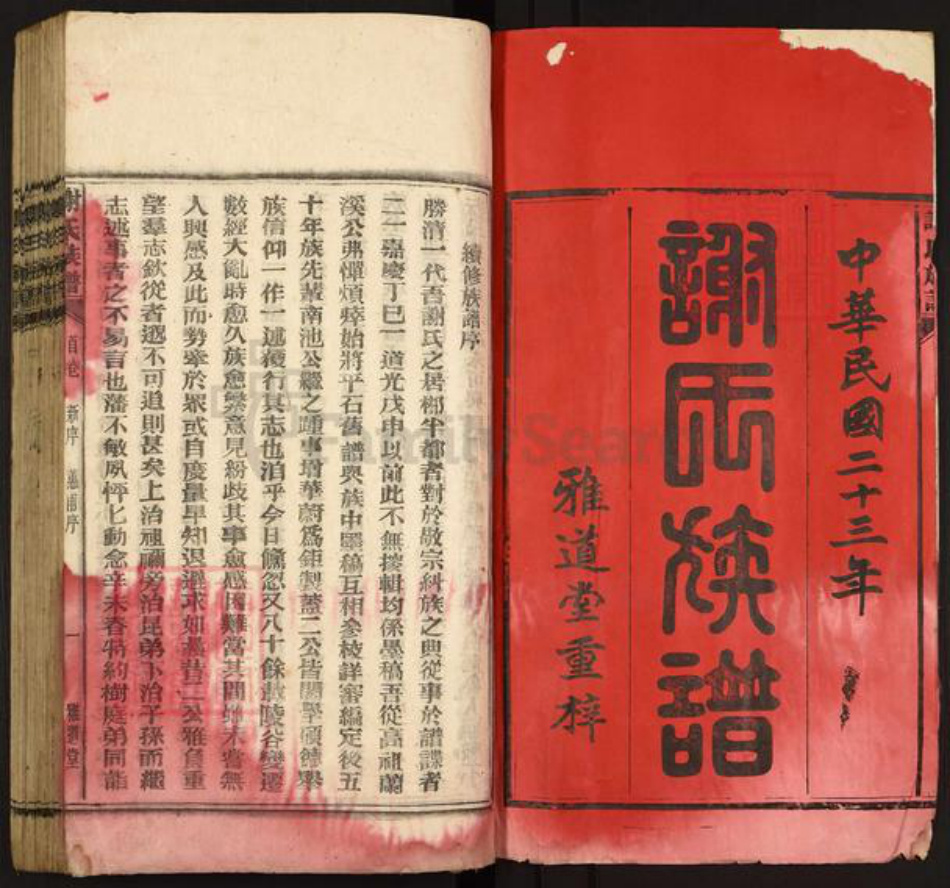 中華民國二十三年
謝氏族譜
雅道堂重梓
續修族譜序
勝清一代吾謝氏之居鄉半都者對於敬宗糾族之典從事於譜諜者
二一嘉慶丁巳一道光戊申以前此不無援輯均係墨稿吾從高祖蘭
溪公弗憚煩瘁始將平石舊譜與族中墨稿互相參校詳審編定後五
十年族先輩南池公繼之踵事增華蔚為鉅製蓋二公皆閎舉碩德舉
族信仰一作一述獲行其志也洎乎今日倏忽又八十餘載陵谷變遷
數經大亂時愈久族愈繁意見紛歧其事愈感困難當其間者未嘗無
人興感及此而勞瘁於眾或自度量早知退避求如曩昔二公雅負重
望羣志欽從者邈不可追則甚矣上治祖禰旁治昆弟下治子孫而繼
志述事者之不易言也藩不敏夙怦匕動念辛未春特約樹庭弟同詣
謝氏族譜
首卷
新序
一
雅道堂